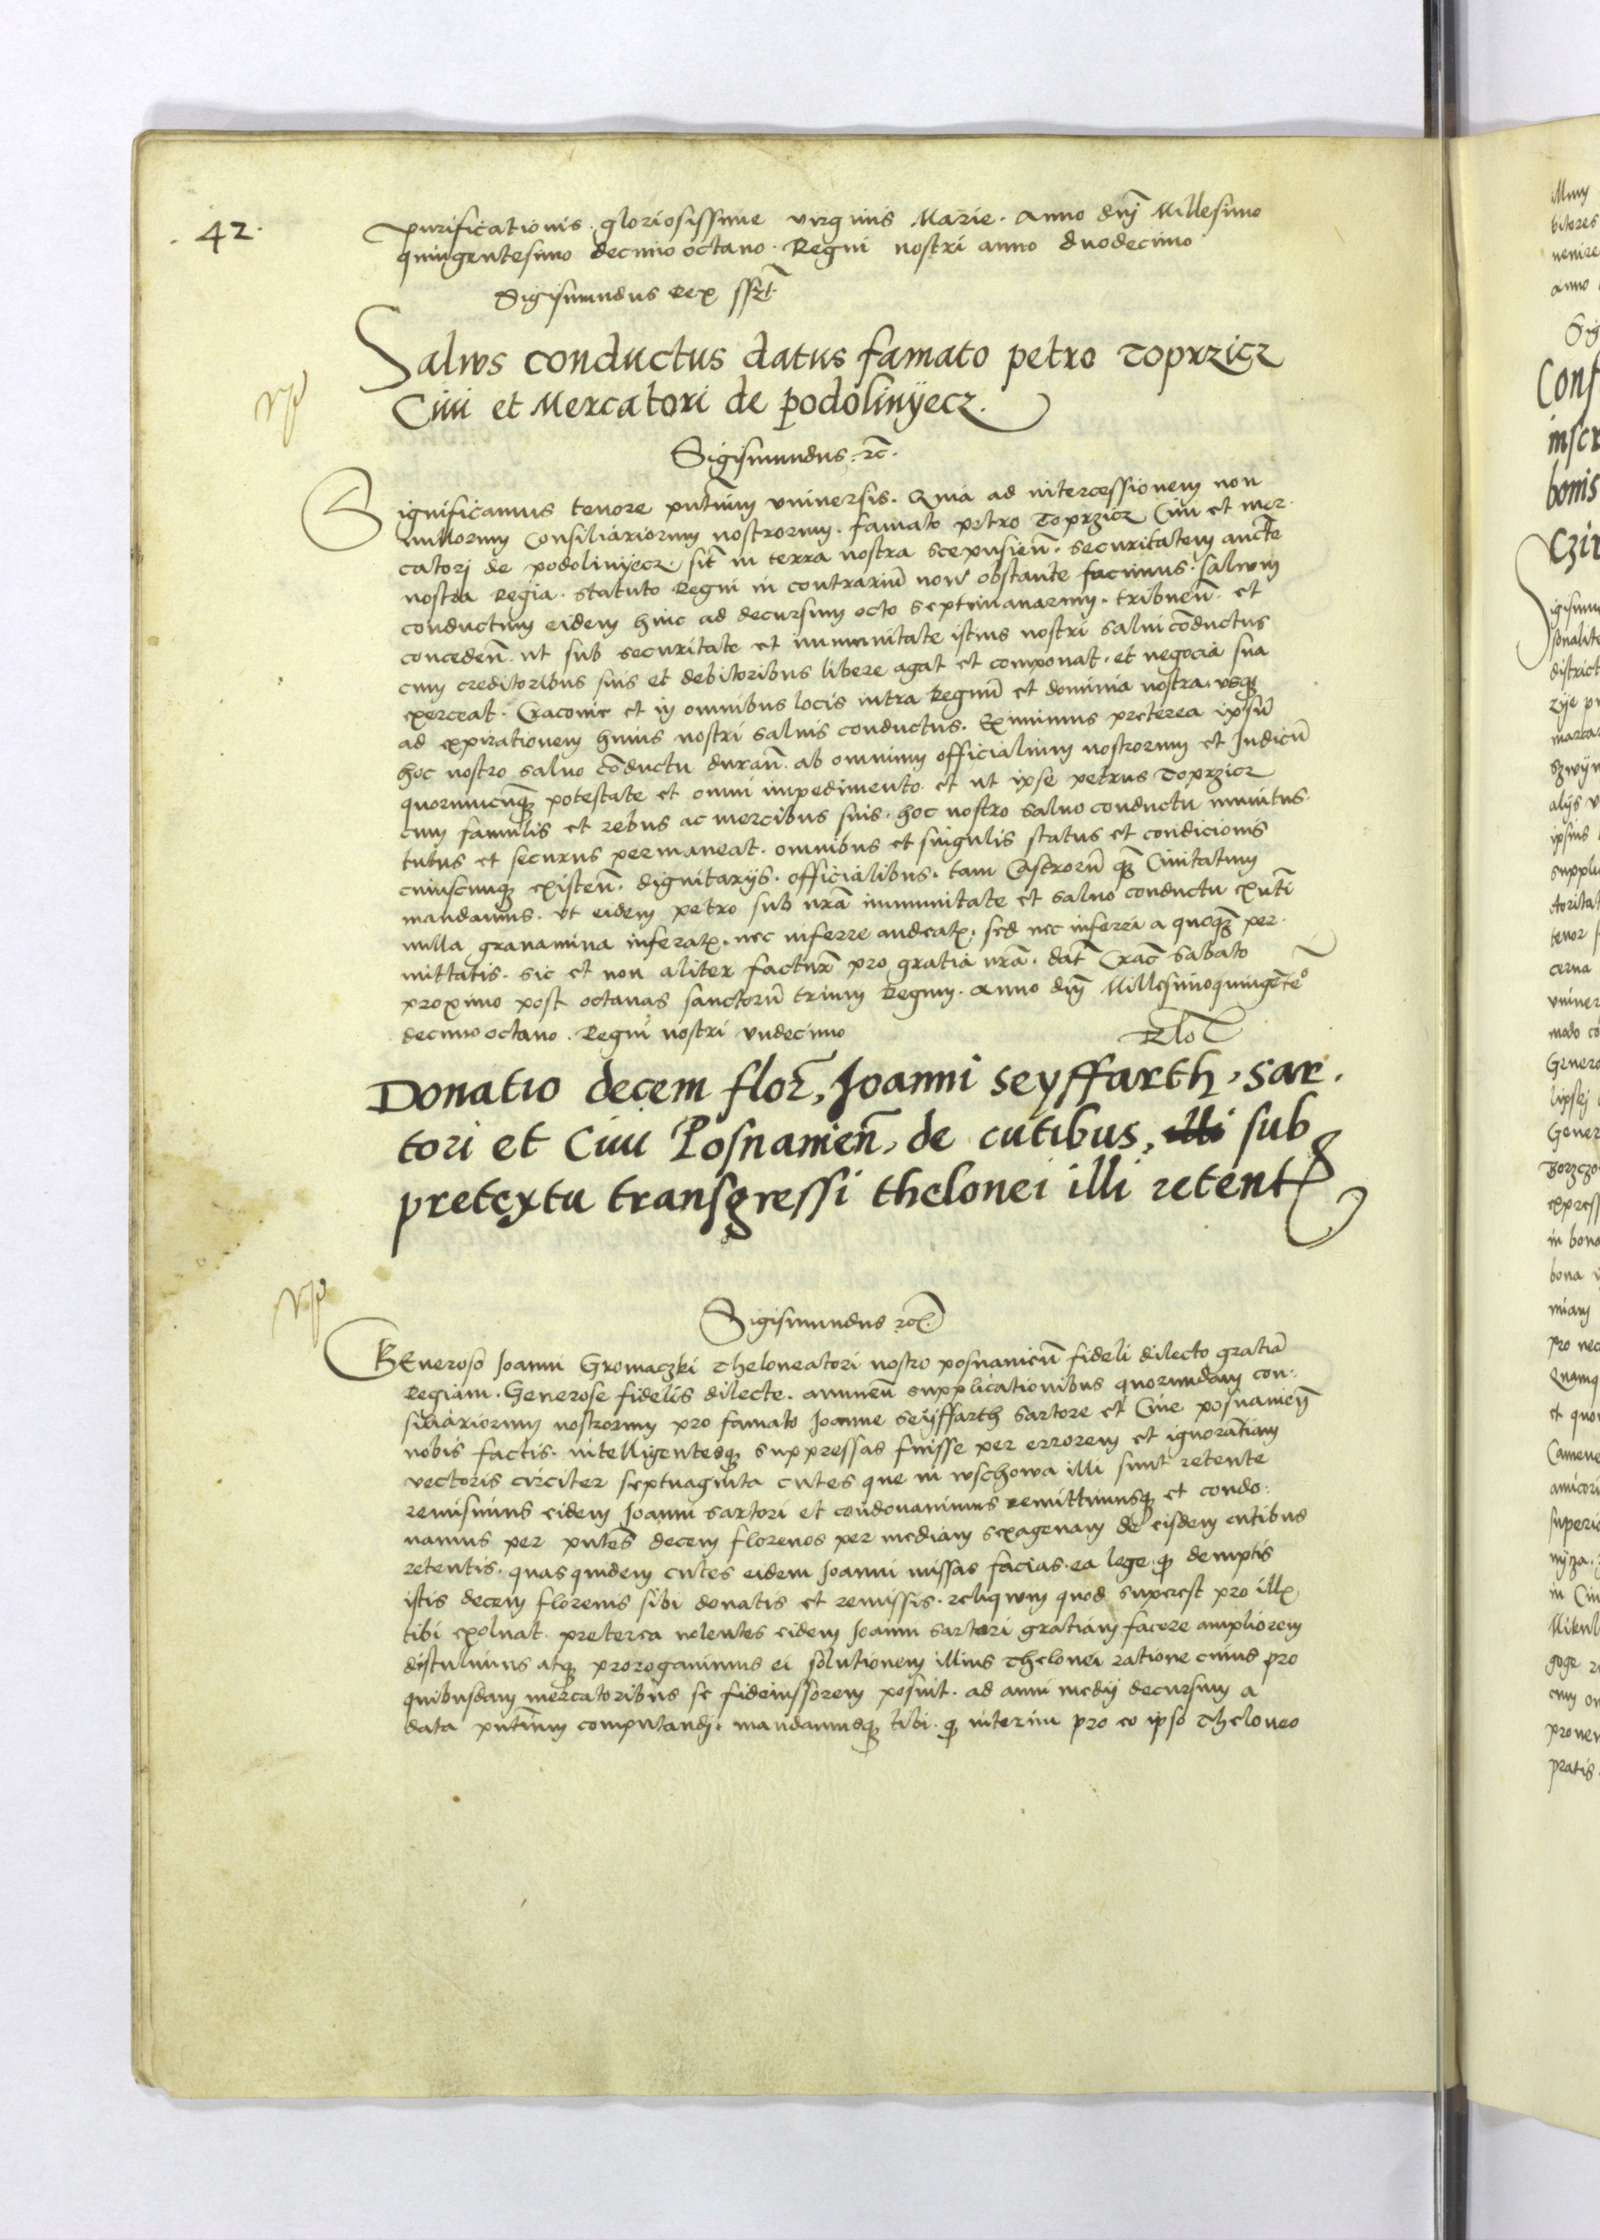 42.
purificationis. gloriosissime virginis Marie. Anno dnj Millesimo
quingentesimo decimo octavo. Regni nostri anno duodecimo
Sigismundus Rex sszt
Salvus conductus datus famato petro Toprzicz
Civi et Mercatori de podolinyecz.
Sigismundus. rc.
Significamus tenore pntium universis. Quia ad intercessionem non
nullorum Consiliariorum nostrorum. famato petro Toprzicz Civi et mer-
catorj de podolinyecz sit in terra nostra scepusien. securitatem aucte
nostra Regia. statuto Regni in contrariu non obstante facimus. salvum
conductum eidem hinc ad decursum octo septimanarum. tribuen. et
conceden. ut sub securitate et immunitate istius nostri salvi coductus
cum creditoribus suis et debitoribus libere agat et componat. et negocia sua
exerceat. Cracovie et in omnibus locis intra Regnu et dominia nostra. usq
ad expirationem huius nostri salvis conductus. Eximimus preterea ipsu
hoc nostro salvo coductu duran. ab omnium officialium nostrorum et Judicu
quorumcunq potestate et omni impedimento. et ut ipse petrus Toprzicz
cum famulis et rebus ac mercibus suis. hoc nostro salvo conductu munitus.
tutus et securus permaneat. omnibus et singulis status et condicionis
cuiuscunq existen. dignitarijs. officialibus. tam Castroru q Civitatum
mandamus. ut eidem petro sub nra immunitate et salvo conductu exnti
nulla gravamina inferat. nec inferre audeat. sed nec inferri a quoq per-
mittatis. sic et non aliter factur pro gratia nra. dat Crac Sabato
proximo post octavas sanctoru trium Regum. Anno dnj Millesimoquingeteo
decimo octavo. Regni nostri undecimo
Rlo
Donatio decem flor, Joanni seyffarth, sar-
tori et Civi Posnanien, de cutibus, illi sub
pretextu transgressi thelonei illi retent
Sigismundus rc.
GEneroso Joanni Gromaczki Theloneatori nostro posnanien fideli dilecto gratia
Regiam. Generose fidelis dilecte. annuen supplicationibus quorundam con-
siliariorum nostrorum pro famato Joanne seyffarth sartore et Cive posnanien
nobis factis. intelligentesq suppressas fuisse per errorem et ignorantiam
vectoris circiter septuaginta cutes que in wschowa illi sunt retente
remisimus eidem Joanni sartori et condonavimus remittimusq et condo-
namus per pntes decem florenos per mediam sexagenam de eisdem cutibus
retentis. quas quidem cutes eidem Joanni missas facias. ea lege. q demptis
istis decem florenis sibi donatis et remissis. reliquum quod superest pro ill
tibi exolvat. preterea volentes eidem Joanni sartori gratiam facere ampliorem
distulimus atq prorogavimus ei solutionem illius Thelonei ratione cuius pro
quibusdam mercatoribus se fideiussorem posuit. ad anni medij decursum a
data pntium computandj. mandamusq tibi. q interim pro eo ipso Theloneo